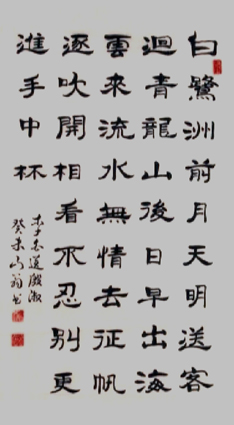 白鷺洲前月天明送客
迴青龍山後日早出海
雲來流水無情去征帆
逐吹開相看不忍別更
進手中杯
李白送殷淑
癸未山翁書